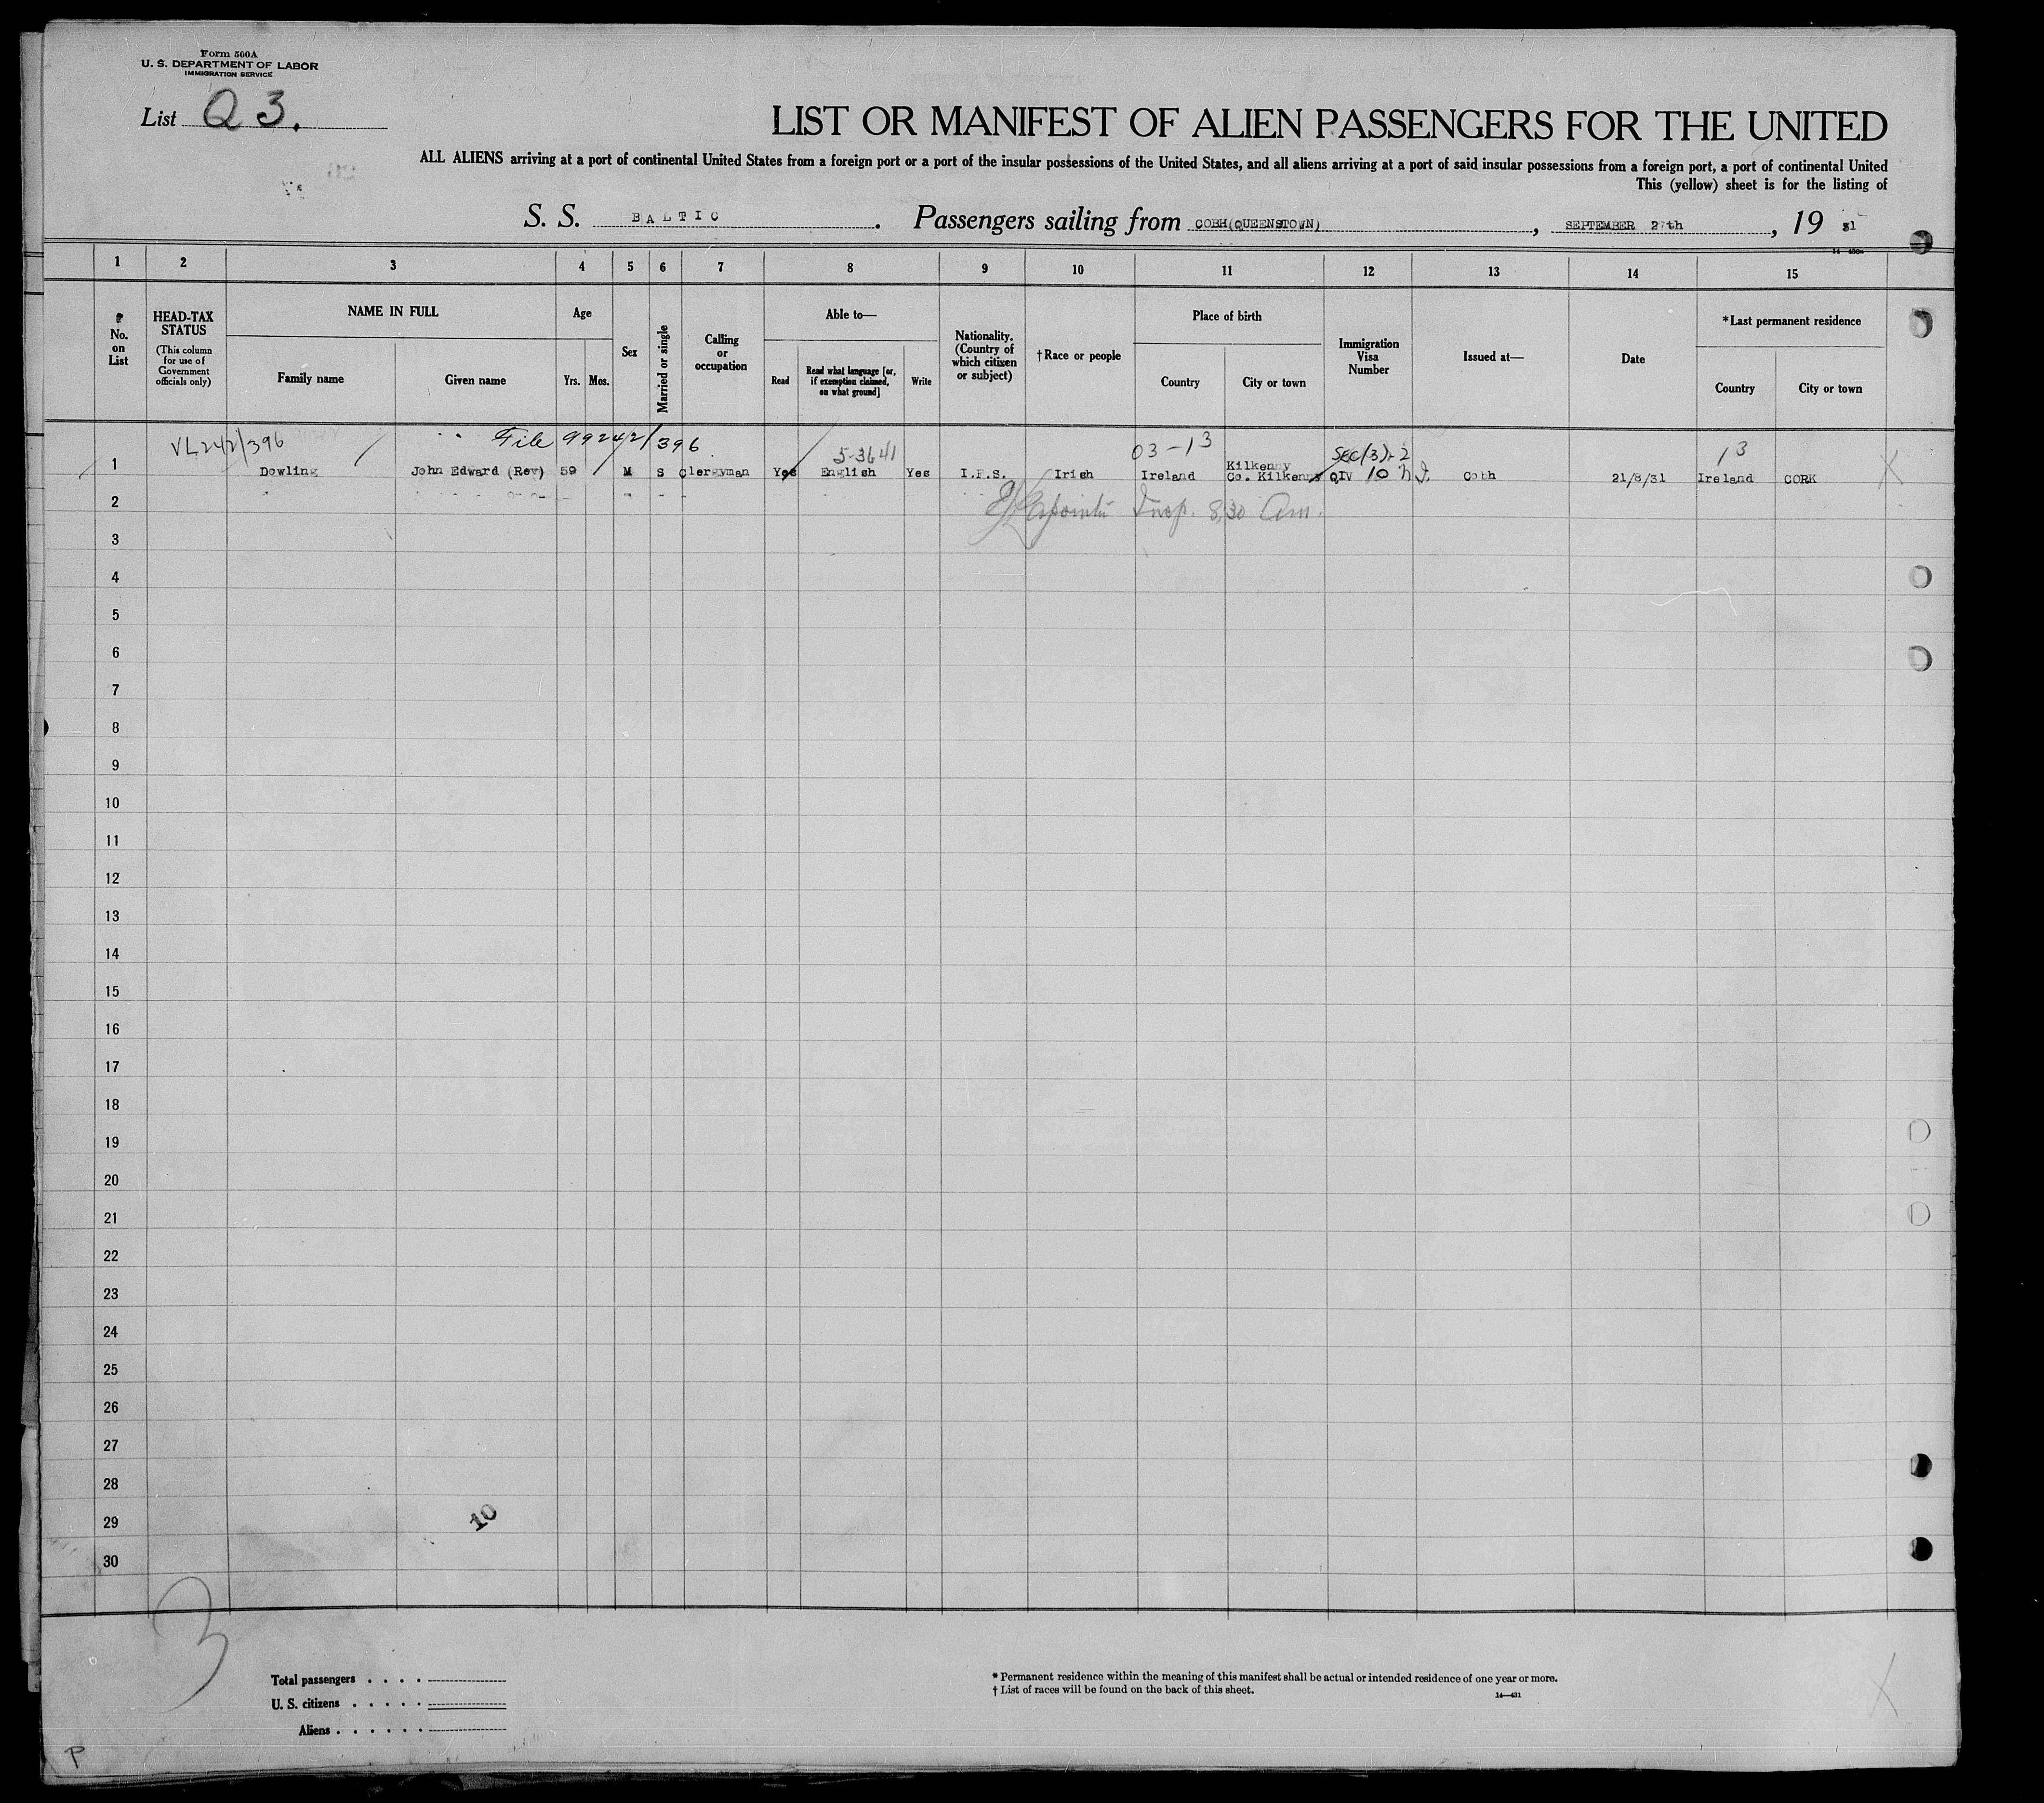 Form 500A
U. S. DEPARTMENT OF LABOR
IMMIGRATION SERVICE
List Q 3.
LIST OR MANIFEST OF ALIEN PASSENGERS FOR THE UNITED
ALL ALIENS arriving at a port of continental United States from a foreign port or a port of the insular possessions of the United States, and all aliens arriving at a port of said insular possessions from a foreign port, a port of continental United
This (yellow) sheet is for the listing of
S. S. BALTIC. Passengers sailing from COBH(QUEENSTOWN), SEPTEMBER 27th, 19 31
1 2 3 4 5 6 7 8 9 10 11 12 13 14 15
No. on List
HEAD-TAX STATUS
(This column for use of Government officials only)
NAME IN FULL
Family name
Given name
Age
Yrs. Mos.
Sex
Married or single
Calling or occupation
Able to—
Read
Read what language [or, if exemption claimed, on what ground]
Write
Nationality. (Country of which citizen or subject)
†Race or people
Place of birth
Country
City or town
Immigration Visa Number
Issued at—
Date
*Last permanent residence
Country
City or town
VL242/396 File 99242/396 5-3641 03-13 Sec(3)-2 13
1 Dowling John Edward (Rev) 59 M S Clergyman Yes English Yes I.F.S. Irish Ireland Kilkenny Co. Kilkenny QIV 10 Cobh 21/8/31 Ireland CORK X
2 Insp. 8,30 Am.
3
4
5
6
7
8
9
10
11
12
13
14
15
16
17
18
19
20
21
22
23
24
25
26
27
28
29
30
10
3
Total passengers . . . .
U. S. citizens . . . . .
Aliens . . . . . .
* Permanent residence within the meaning of this manifest shall be actual or intended residence of one year or more.
† List of races will be found on the back of this sheet.
14—431
X
P